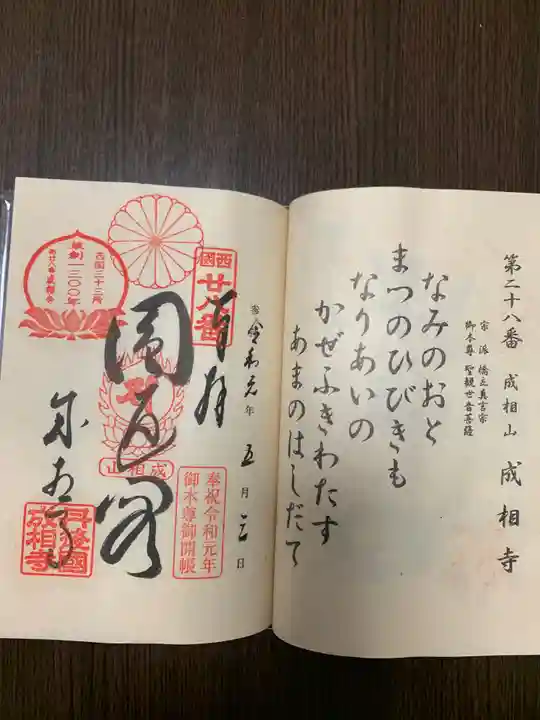 第二十八番 成相山 成相寺
宗派 橋立真言宗
御本尊 聖観世音菩薩
なみのおと
まつのひびきも
なりあいの
かぜふきわたす
あまのはしだて
令和元年五月三日
奉拝
西国
廿八番
圓通閣
成相山
奉祝令和元年
御本尊御開帳
西国三十三所
草創一三〇〇年
第廿八番成相寺
成相寺
丹後國
成相寺